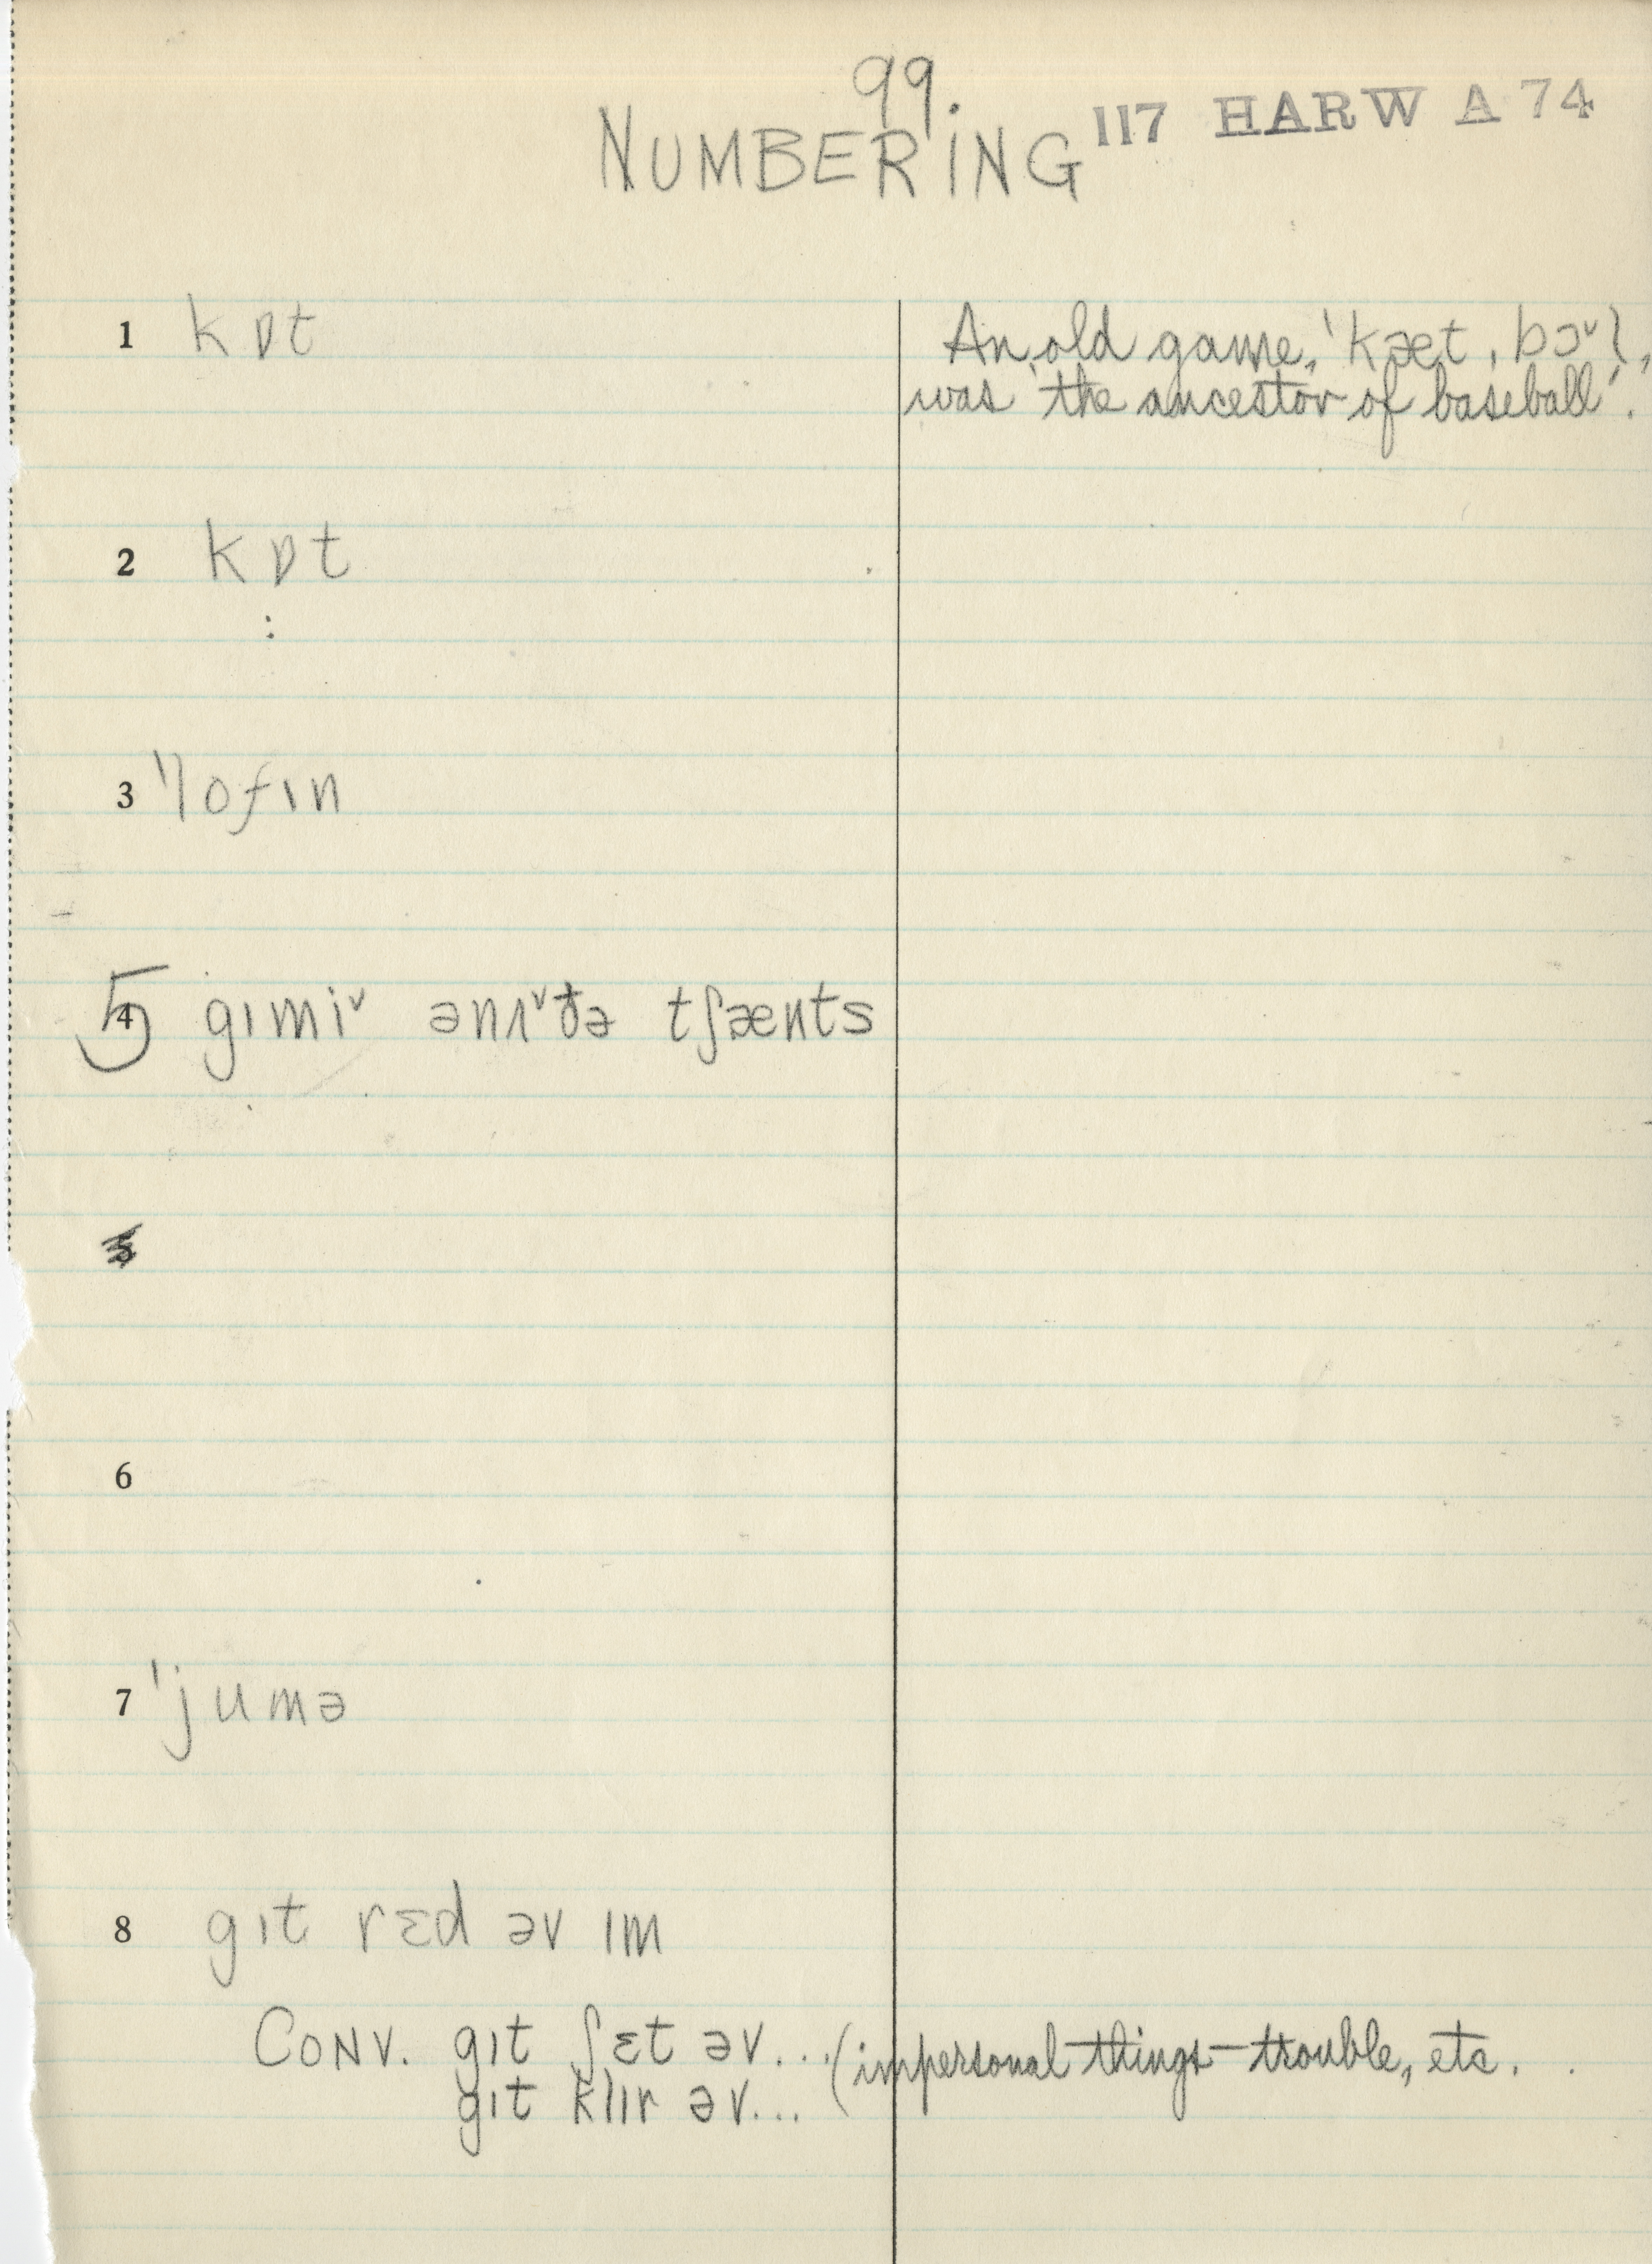 99.
NUMBERING 117 HARW A 74
1 kɒt An old game, 'kæt ˌbɔ˅l,
was 'the ancestor of baseball'.
2 kɒt
:
3 'lofɪn
5 4 gɪmi˅ ənʌ˅ðə tʃænts
5
6
7 'jumə
8 gɪt rɛd əv ɪm
CONV. gɪt ʃɛt əv... (impersonal things—trouble, etc.
gɪt klɪr əv...